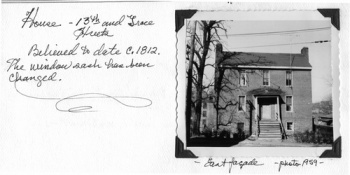 House - 13½ and Grace
Streets
Believed to date c. 1812.
The window sash has been
changed.
- East Façade - photo 1959 -